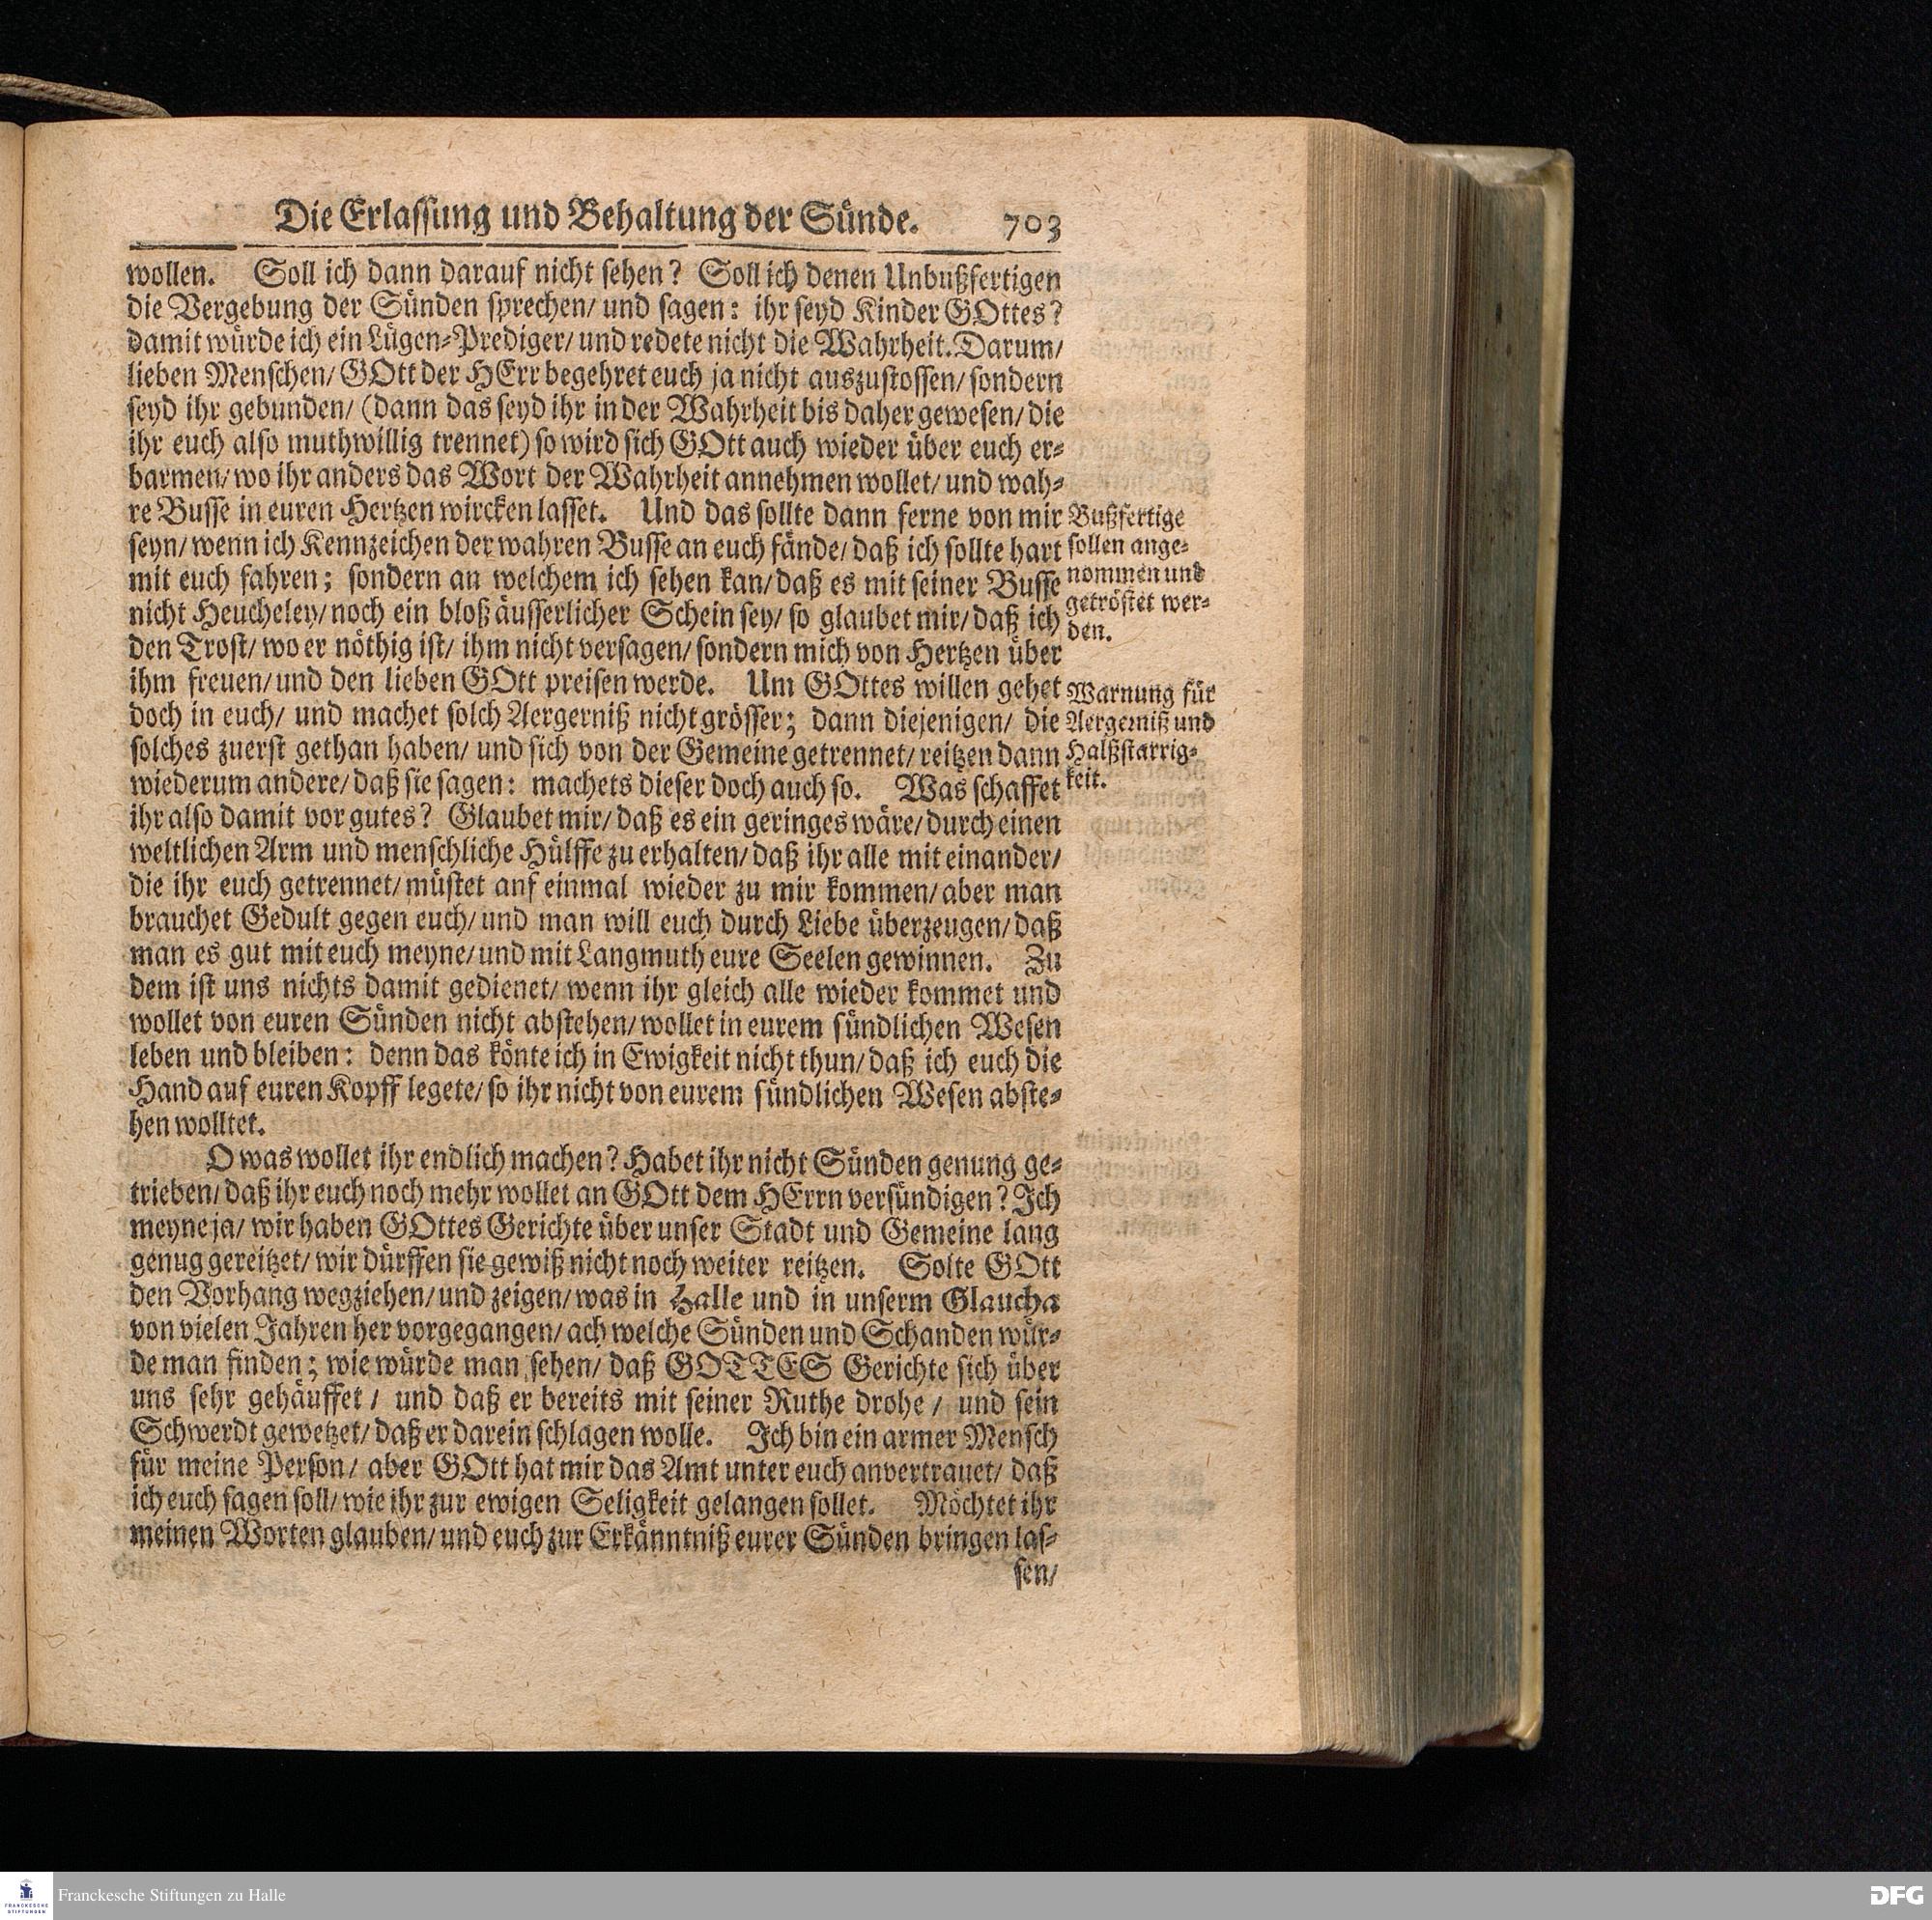 Die Erlassung und Behaltung der Sünde. 703
wollen. Soll ich dann darauf nicht sehen? Soll ich denen Unbußfertigen
die Vergebung der Sünden sprechen/ und sagen: ihr seyd Kinder GOttes?
damit würde ich ein Lügen-Prediger/ und redete nicht die Wahrheit. Darum/
lieben Menschen/ GOtt der HErr begehret euch ja nicht auszustossen/ sondern
seyd ihr gebunden/ (dann das seyd ihr in der Wahrheit bis daher gewesen/ die
ihr euch also muthwillig trennet) so wird sich GOtt auch wieder über euch er-
barmen/ wo ihr anders das Wort der Wahrheit annehmen wollet/ und wah-
re Busse in euren Hertzen wircken lasset. Und das sollte dann ferne von mir
seyn/ wenn ich Kennzeichen der wahren Busse an euch fände/ daß ich sollte hart
mit euch fahren; sondern an welchem ich sehen kan/ daß es mit seiner Busse
nicht Heucheley/ noch ein bloß äusserlicher Schein sey/ so glaubet mir/ daß ich
den Trost/ wo er nöthig ist/ ihm nicht versagen/ sondern mich von Hertzen über
ihm freuen/ und den lieben GOtt preisen werde. Um GOttes willen gehet
doch in euch/ und machet solch Aergerniß nicht grösser; dann diejenigen/ die
solches zuerst gethan haben/ und sich von der Gemeine getrennet/ reitzen dann
wiederum andere/ daß sie sagen: machets dieser doch auch so. Was schaffet
ihr also damit vor gutes? Glaubet mir/ daß es ein geringes wäre/ durch einen
weltlichen Arm und menschliche Hülffe zu erhalten/ daß ihr alle mit einander/
die ihr euch getrennet/ müstet auf einmal wieder zu mir kommen/ aber man
brauchet Gedult gegen euch/ und man will euch durch Liebe überzeugen/ daß
man es gut mit euch meyne/ und mit Langmuth eure Seelen gewinnen. Zu
dem ist uns nichts damit gedienet/ wenn ihr gleich alle wieder kommet und
wollet von euren Sünden nicht abstehen/ wollet in eurem sündlichen Wesen
leben und bleiben: denn das könte ich in Ewigkeit nicht thun/ daß ich euch die
Hand auf euren Kopff legete/ so ihr nicht von eurem sündlichen Wesen abste-
hen wolltet.
O was wollet ihr endlich machen? Habet ihr nicht Sünden genung ge-
trieben/ daß ihr euch noch mehr wollet an GOtt dem HErrn versündigen? Ich
meyne ja/ wir haben GOttes Gerichte über unser Stadt und Gemeine lang
genug gereitzet/ wir dürffen sie gewiß nicht noch weiter reitzen. Solte GOtt
den Vorhang wegziehen/ und zeigen/ was in Halle und in unserm Glaucha
von vielen Jahren her vorgegangen/ ach welche Sünden und Schanden wür-
de man finden; wie würde man sehen/ daß GOTTES Gerichte sich über
uns sehr gehäuffet/ und daß er bereits mit seiner Ruthe drohe/ und sein
Schwerdt gewetzet/ daß er darein schlagen wolle. Ich bin ein armer Mensch
für meine Person/ aber GOtt hat mir das Amt unter euch anvertrauet/ daß
ich euch sagen soll/ wie ihr zur ewigen Seligkeit gelangen sollet. Möchtet ihr
meinen Worten glauben/ und euch zur Erkänntniß eurer Sünden bringen las-
sen/
Bußfertige
sollen ange-
nommen und
getröstet wer-
den.
Warnung für
Aergerniß und
Halßstarrig-
keit.
FRANCKESCHE
STIFTUNGEN
Franckesche Stiftungen zu Halle
DFG